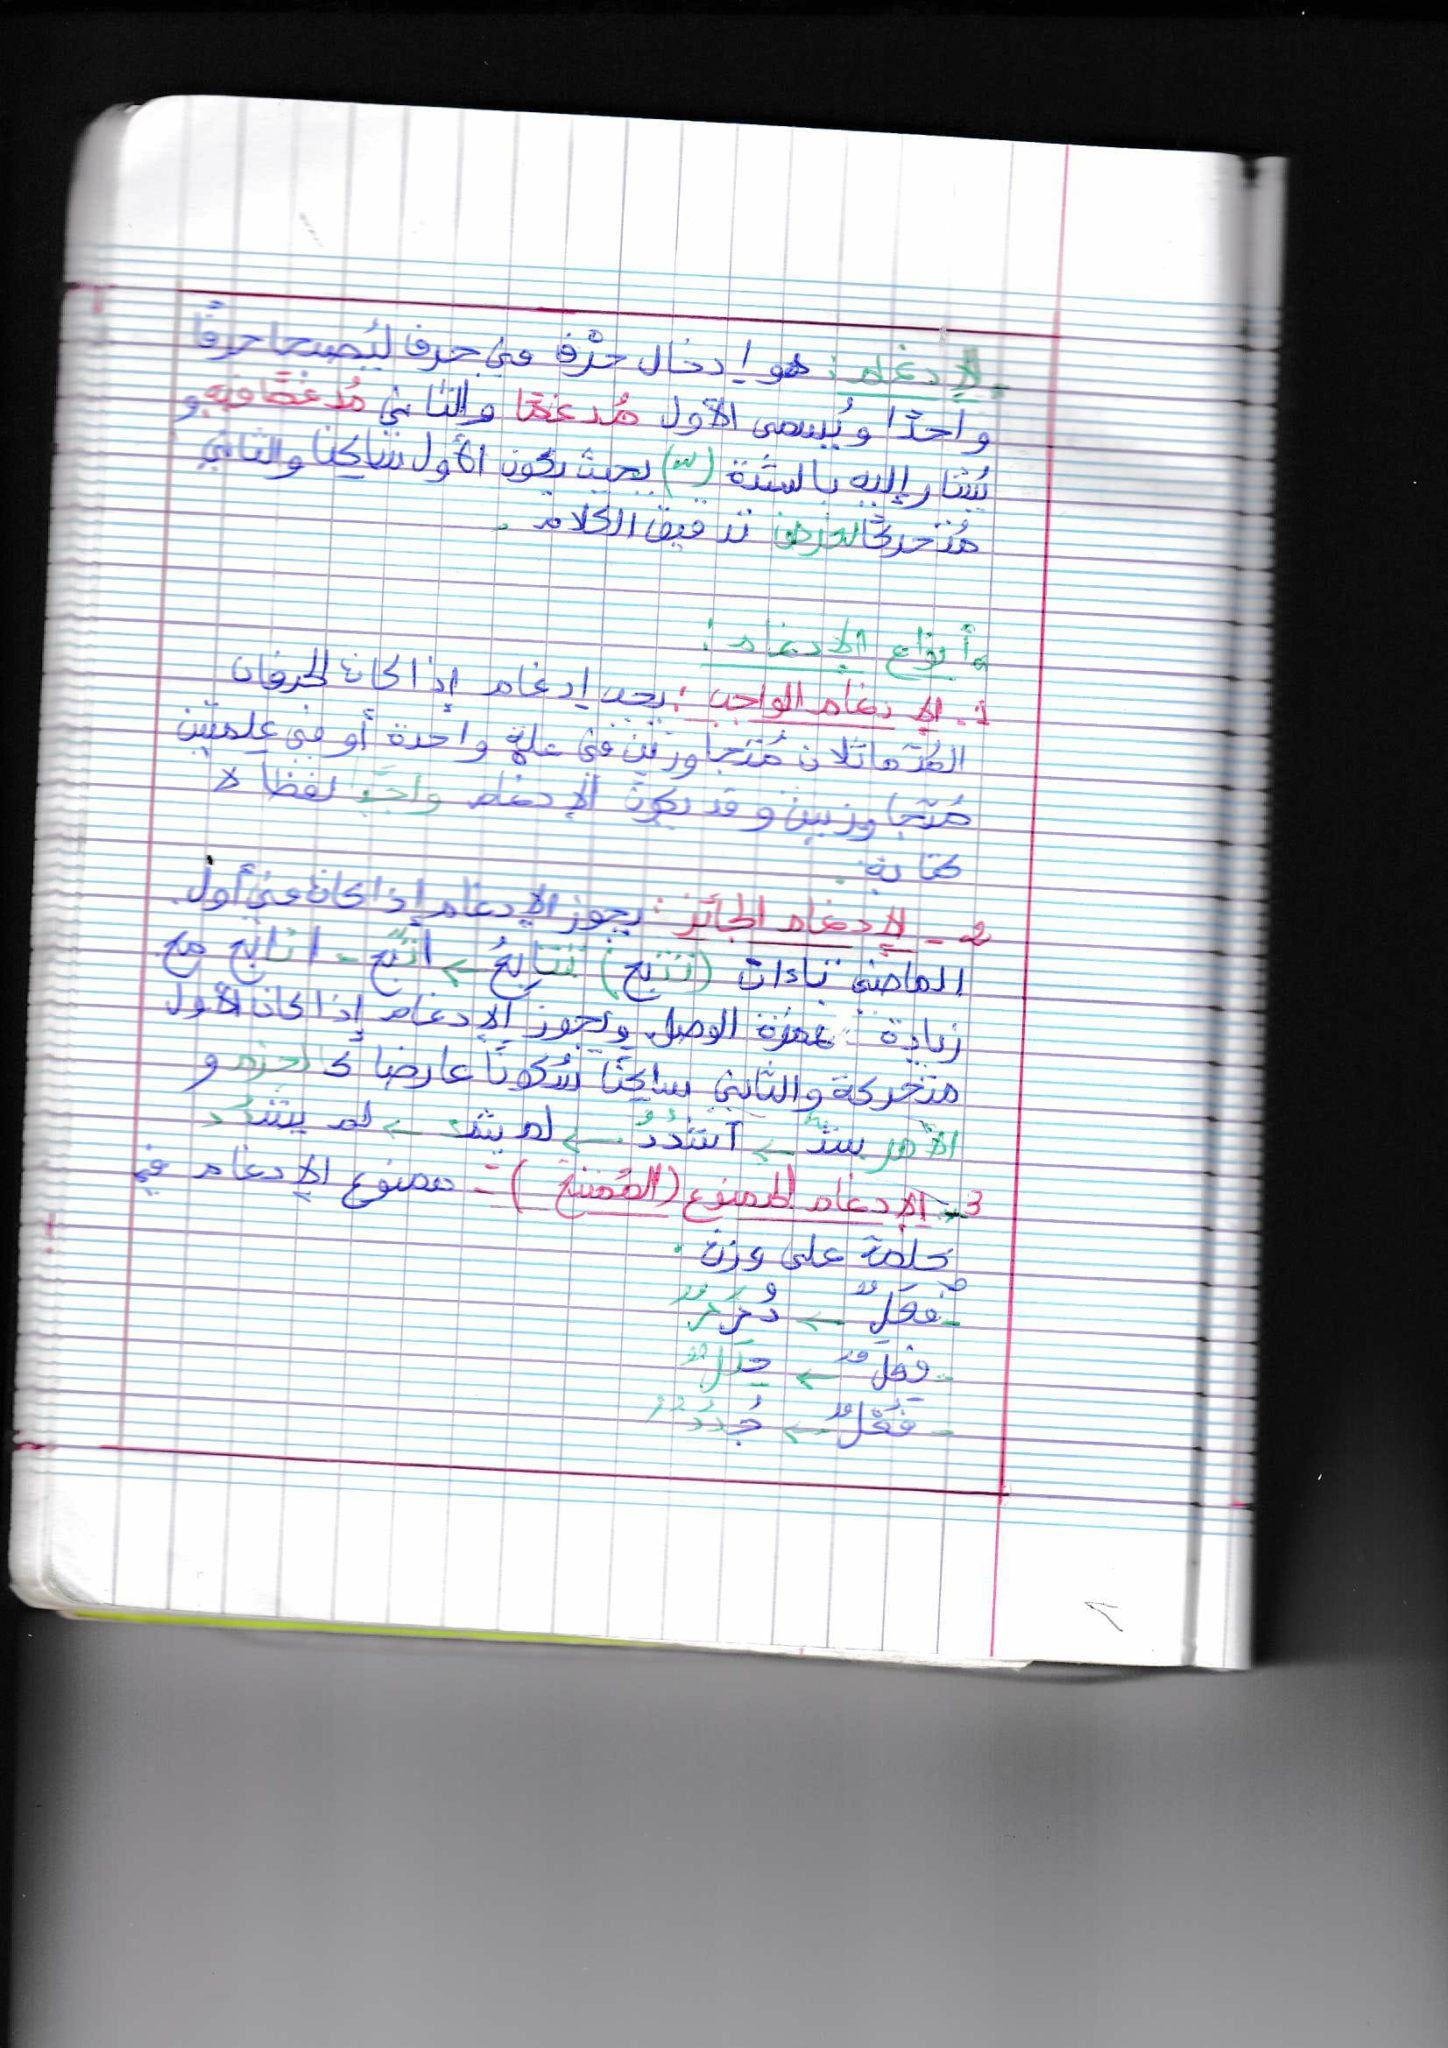 - الإدغام: هو إدخال حرْف في حرف ليُصبحا حرفًا
واحدًا ويُسمى الأول مُدغمًا والثاني مُدغمًا فيه و
يُشار إليه بالشدة (ّ) بحيث يكون الأول ساكنا والثاني
مُتحركًا لغرض تدقيق الكلام.
أنواع الإدغام:
1- الإدغام الواجب: يجب إدغام إذا كان الحرفان
المُتماثلان مُتجاورين في كلمة واحدة أو في كلمتين
مُتجاورتين وقد يكون الإدغام واجبً لفظا لا
كتابة.
2- الإدغام الجائز: يجوز الإدغام إذا كان في أول
الماضي تاءان (تتبع) تتابعُ ← اتّبع - اتّابع مع
زيادة همزة الوصل ويجوز الإدغام إذا كان الأول
متحركة والثاني ساكنًا سُكونًا عارضا كالجزم و
الأمر شدّ ← اشْدُدُ ← لم يشدّ ← لم يشدُد
3- الإدغام الممنوع (المُمتنع) - ممنوع الإدغام في
كلمة على وزن.
- فُعَلٌ ← دُرَرٌ
- فعَلٌ ← حِلَلٌ
- فُعُلٌ ← جُدُدٌ